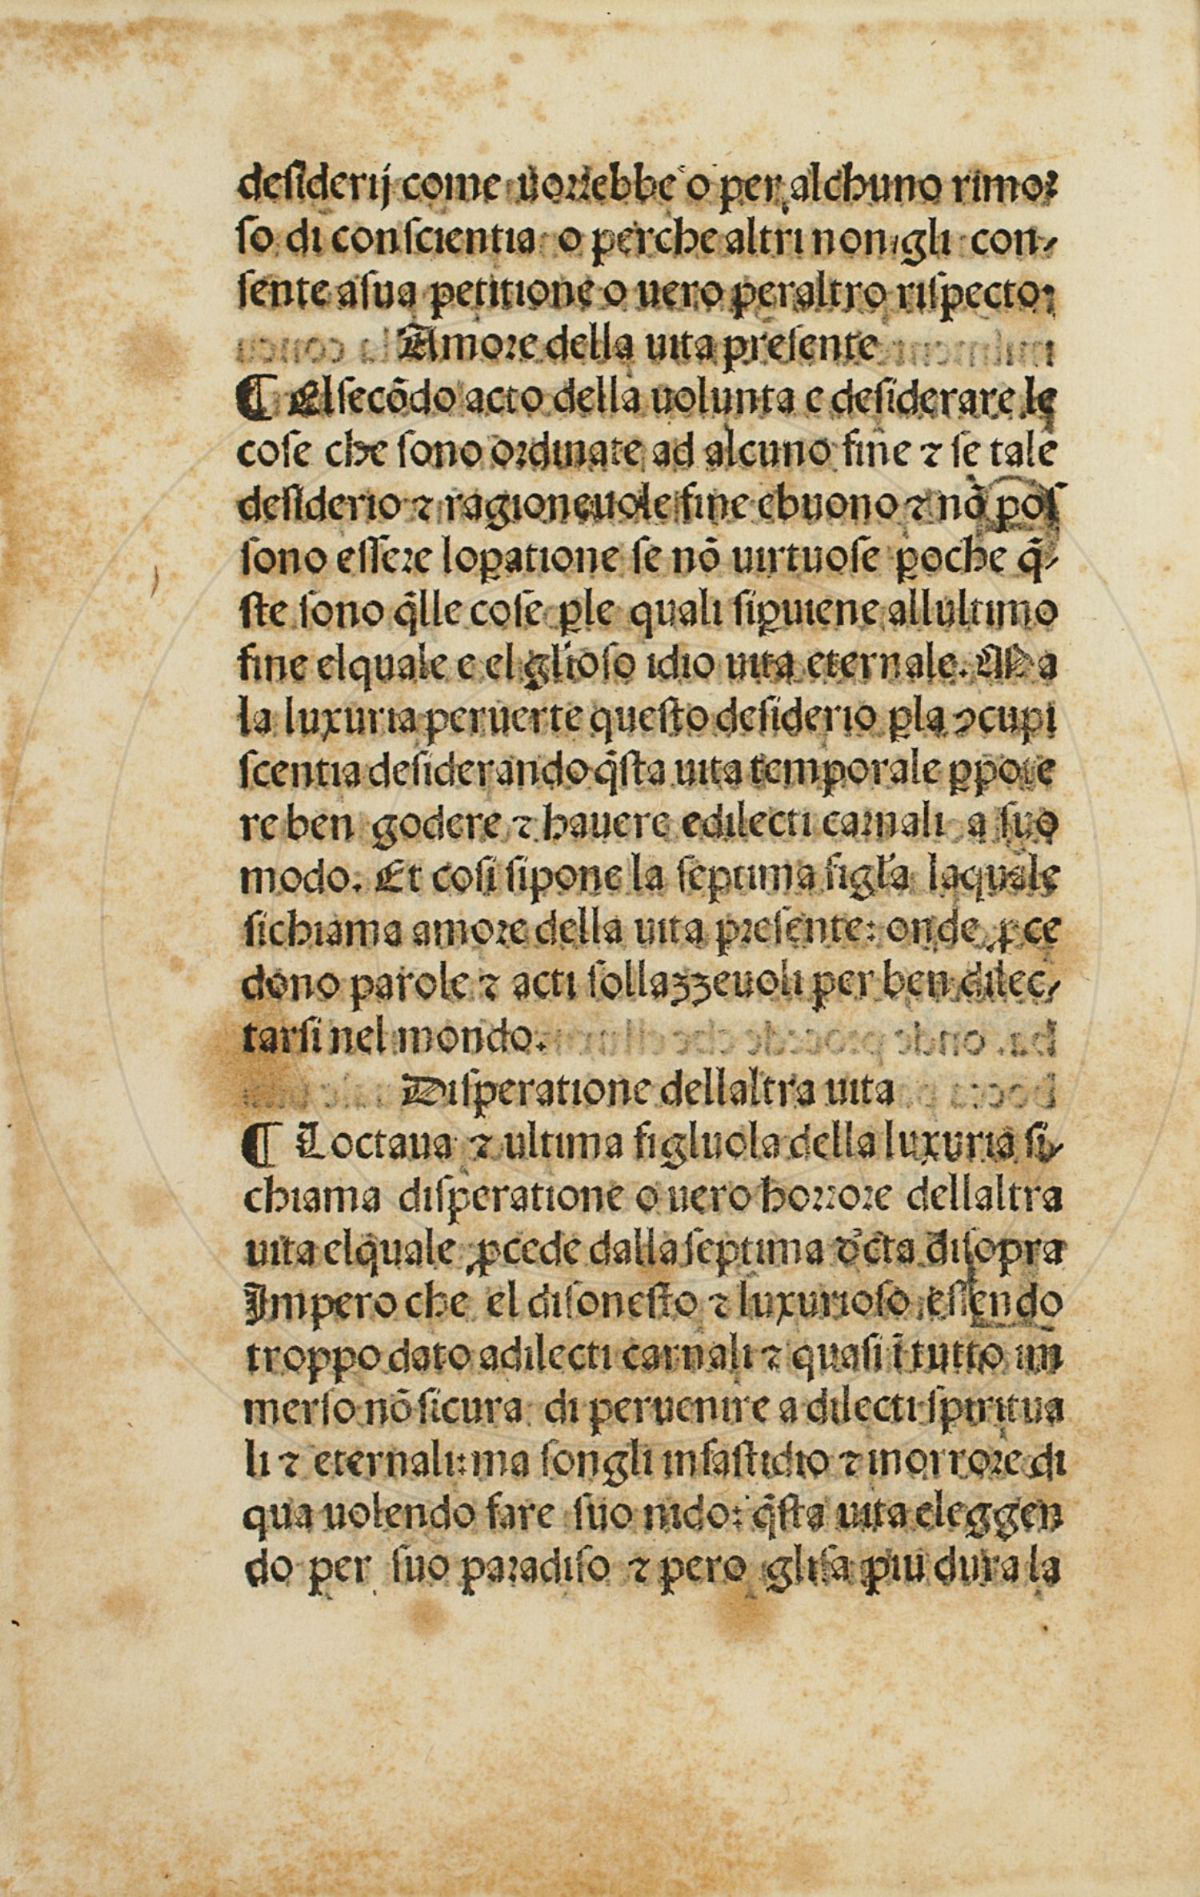 desiderij come uorrebbe o per alchuno rimor
so di conscientia o perche altri non gli con-
sente asua petitione o uero peraltro rispecto:
Amore della uita presente
¶ Elsecōdo acto della uolunta e desiderare le
cose che sono ordinate ad alcuno fine ⁊ se tale
desiderio ⁊ ragioneuole fine ebuono ⁊ nō pos
sono essere loꝑatione se nō uirtuose ꝑoche q̄-
ste sono q̄lle cose ꝑle quali siꝑuiene allultimo
fine elquale e el gl'ioso idio uita eternale. Ma
la luxuria peruerte questo desiderio ꝑla ↄcupi
scentia desiderando q̄sta uita temporale ꝑpote
re ben godere ⁊ hauere edilecti carnali a suo
modo. Et cosi sipone la septima figl'a laquale
sichiama amore della uita presente: onde ꝓce
dono parole ⁊ acti sollazzeuoli per ben dilec-
tarsi nel mondo.
Disperatione dellaltra uita
¶ Loctaua ⁊ ultima figluola della luxuria si-
chiama disperatione o uero horrore dellaltra
uita elquale ꝓcede dalla septima d'cta disopra
Impero che el disonesto ⁊ luxurioso essendo
troppo dato adilecti carnali ⁊ quasi ī tutto im
merso nō sicura di peruenire a dilecti spiritua
li ⁊ eternali: ma songli infastidio ⁊ inorrore di
qua uolendo fare suo nido: q̄sta uita eleggen
do per suo paradiso ⁊ pero glisa piu dura la